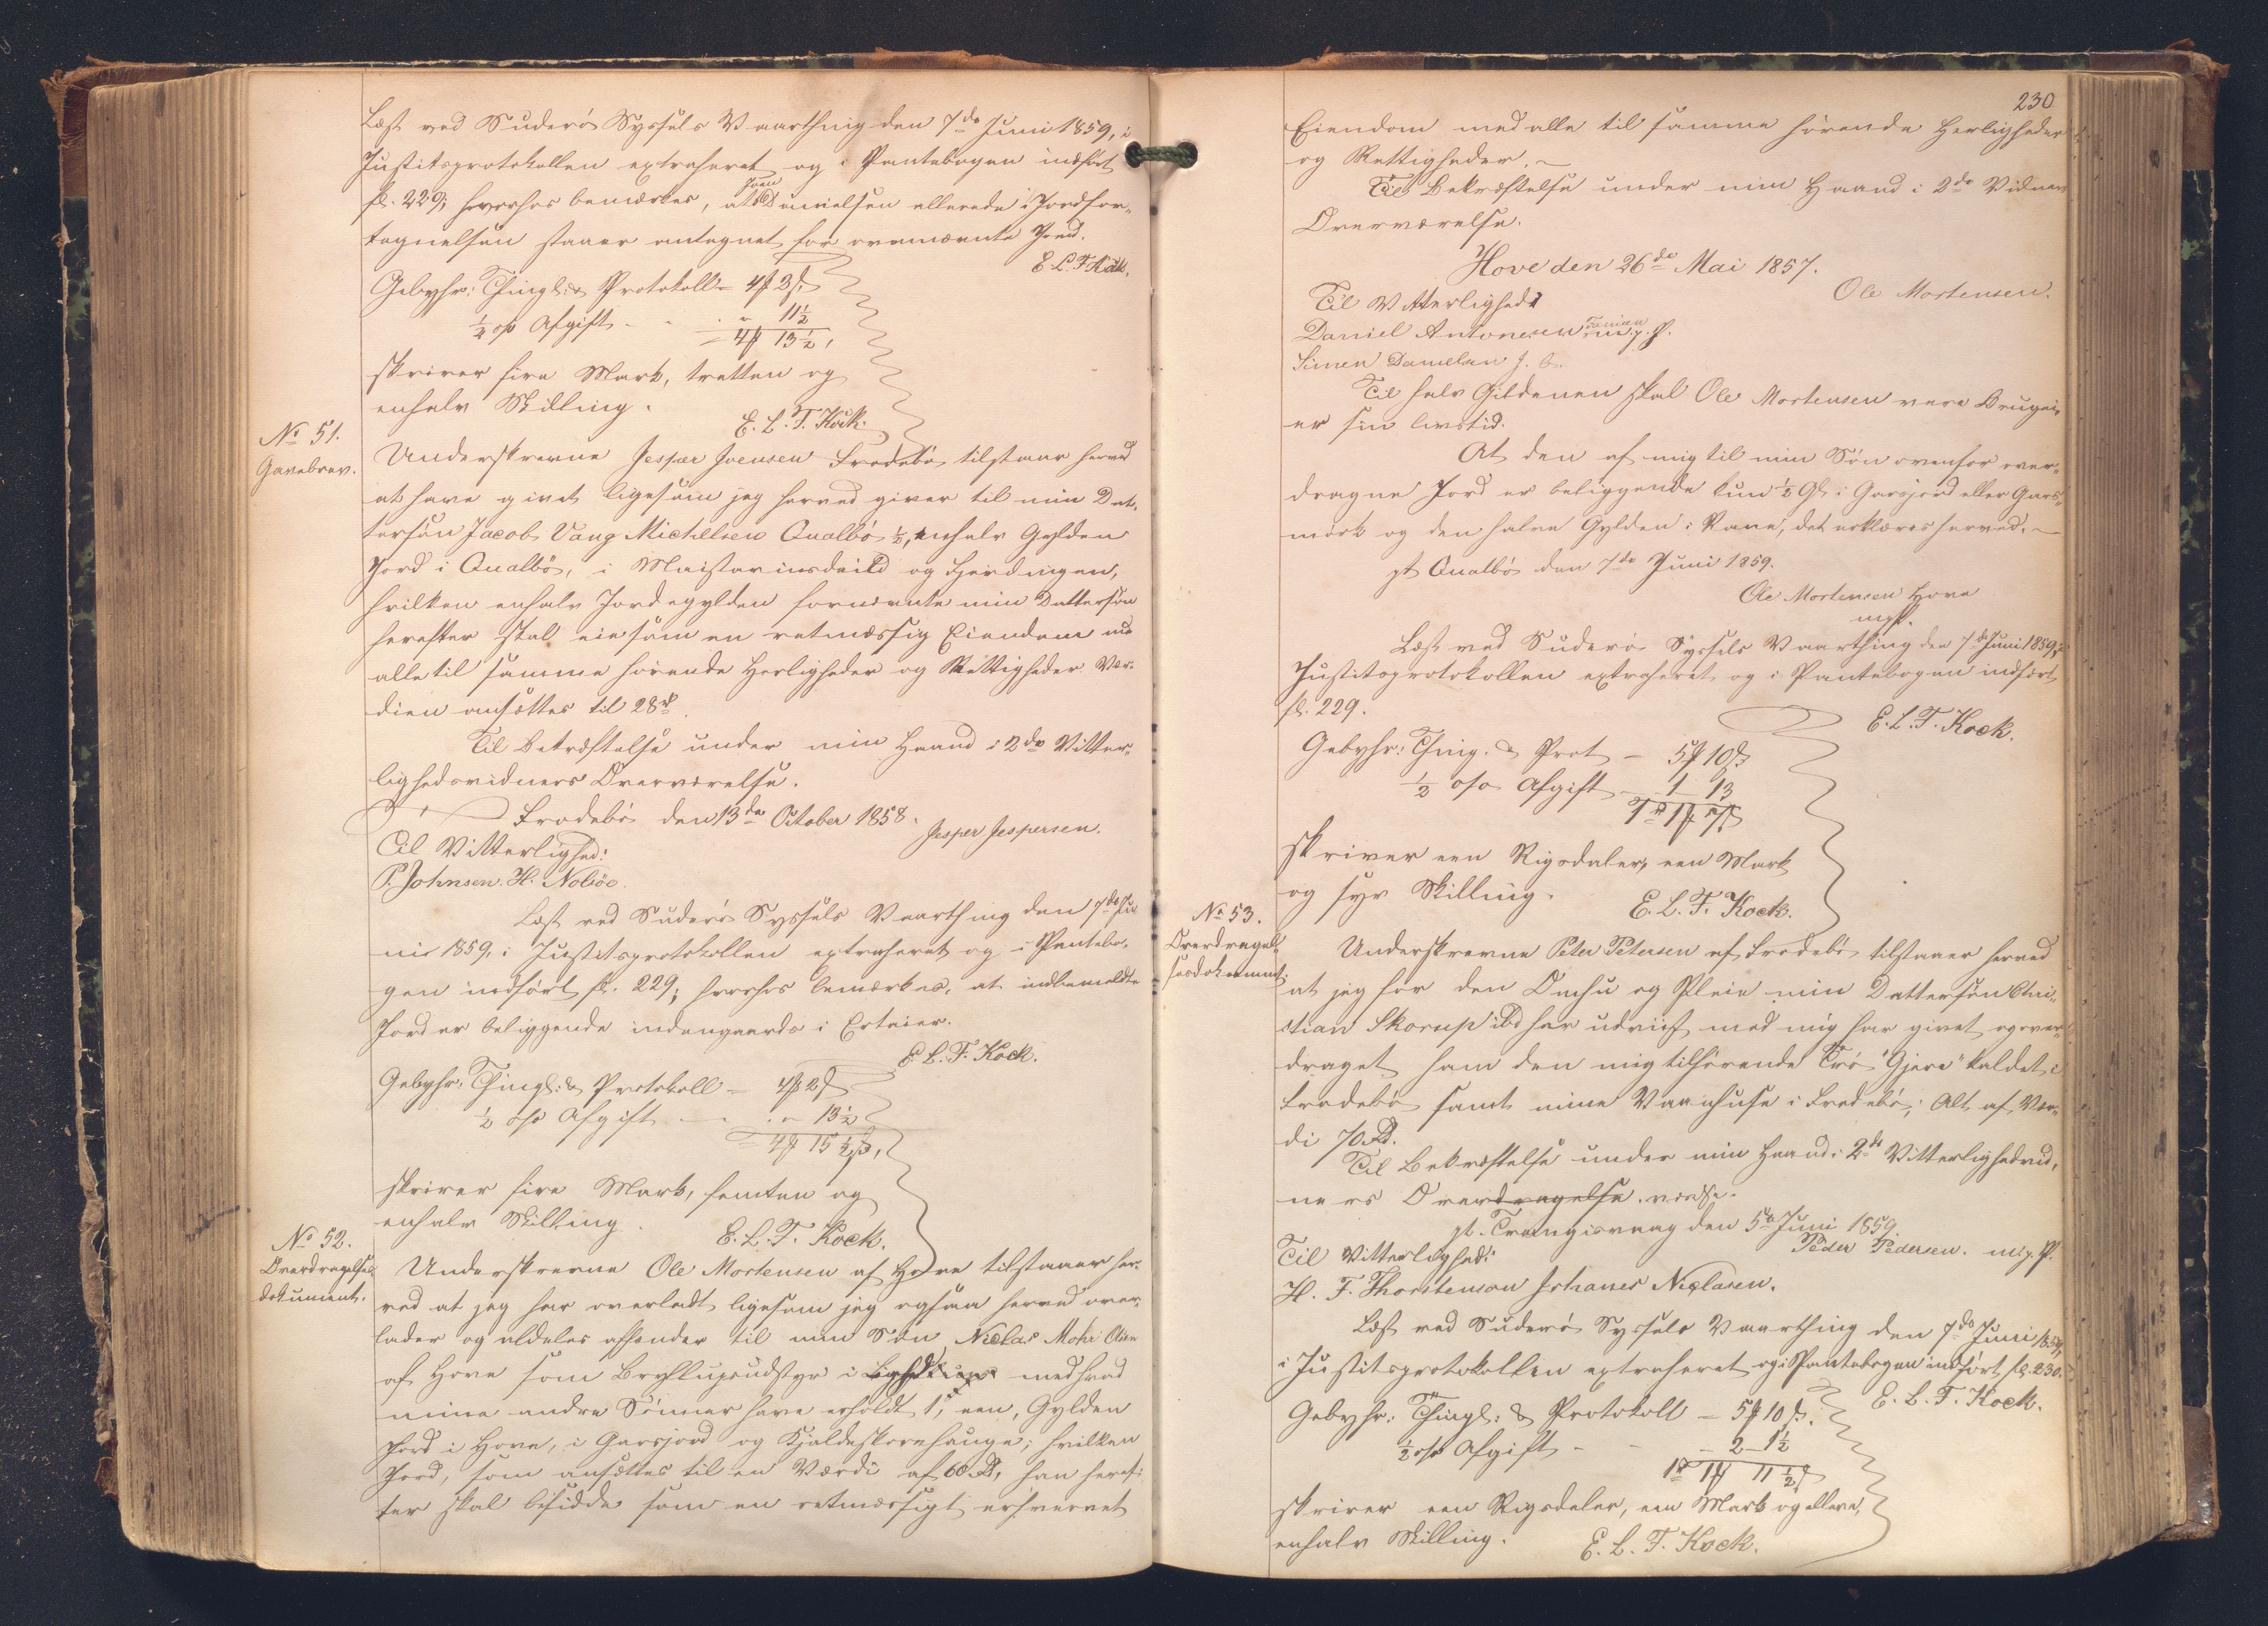 Læst ved Suderö Syssels Vaarthing den 7de Juni 1859, i
Justitsprotokollen extraheret og i Pantebogen indført
fl. 229; hvorhos bemærkes, at Joen Danielsen allerede i Jordfor-
tegnelsen staaer antegnet for ovennævnte Jord.
E. L. F. Kock.
Gebyhr: Thingl: & Protokoll = 4 ₰ 3 ß
½ o/o Afgift - - . " 11½
= 4 ₰ 13½,
skriver fire Mark, tretten og
enhalv Skilling.
E. L. F. Kock.
No 51.
Gavebrev.
Underskrevne Jesper Joensen Frodebö tilstaaer herved
at have givet ligesom jeg herved giver til min Dat-
tersön Jacob Vang Michelsen Qualbö ½, enhalv Gylden
Jord i Qualbö, i Maistarinsdeild og Fjerdingen,
hvilken enhalv Jordegylden fornævnte min Dattersön
herefter skal eie som en retmæssig Eiendom med
alle til samme hörende Herligheder og Rettigheder. Vær-
dien ansættes til 28 rd.
Til Bekræftelse under min Haand i 2de Vitter-
lighedsvidners Overværelse.
Frodebö den 13de October 1858.
Jesper Jespersen.
Til Vitterlighed:
P. Johnsen. H. Nolsöe.
Læst ved Suderö Syssels Vaarthing den 7de Ju-
ni 1859, i Justitsprotokollen extraheret og i Pantebo-
gen indført fl. 229; hvorhos bemærkes, at indbemeldte
Jord er beliggende indengaards i
E. L. F. Kock.
Gebyhr: Thingl: & Protokoll - 4 ₰ 2 ß
½ o/o Afgift - - . " 13½
= 4 ₰ 15½ ß,
skriver fire Mark, femten og
enhalv Skilling.
E. L. F. Kock.
No 52.
Overdragelses-
dokument.
Underskrevne Ole Mortensen af Hove tilstaaer her-
ved at jeg har overladt ligesom jeg ogsaa herved over-
lader og aldeles afhænder til min Sön Niclas Mohr Olsen
af Hove som Bryllupsudstyr i Lighed med hvad
mine andre Sönner have erholdt 1, een, Gylden
Jord i Hove, i Garsjord og Kjaldeskorehauge; hvilken
Jord, som ansættes til en Værdi af 60 Rd, han heref-
ter skal besidde som en retmæssigt erhvervet
230
Eiendom med alle til samme hörende Herligheder
og Rettigheder. -
Til Bekræftelse under min Haand i 2de Vidners
Overværelse.
Hove den 26de Mai 1857.
Ole Mortensen.
Til Vitterlighed:
Daniel Antonesen m. p. P.
Simen Danielsen
Til halv Gildenen skal Ole Mortensen være Bruger
er sin livstid.
At den af mig til min Sön ovenfor over-
dragne Jord er beliggende kun ½ Gl. i Garsjord eller Gars-
mörk og den halve Gylden i Vane, det erklæres herved. -
pt Qualbö den 7de Juni 1859.
Ole Mortensen Hove
mpP.
Læst ved Suderö Syssels Vaarthing den 7de Juni 1859, i
Justitsprotokollen extraheret og i Pantebogen indført
fl. 229.
E. L. F. Kock.
Gebyhr: Thing. & Prot - 5 ₰ 10 ß
½ o/o Afgift - 1 13
1 rd 1 ₰ 7 ß
skriver een Rigsdaler, een Mark
og syv Skilling.
E. L. F. Kock.
No 53.
Overdragel-
sesdokument.
Underskrevne Peter Petersen af Frodebö tilstaaer herved
at jeg for den Omhu og Pleie min Dattersön Chri-
stian Skorup ibd har udviist med mig har givet og over-
draget ham den mig tilhörende Trö "Gjere" kaldet i
Frodebö samt mine Vaanhuse i Frodebö; Alt af Vær-
di 70 Rd.
Til Bekræftelse under min Haand i 2de Vitterlighedsvid-
ners Overdragelse. værelse.
pt. Trangisvaag den 5te Juni 1859.
Peder Pedersen. m.p.P.
Til Vitterlighed:
H. F. Thorstenson Johanes Niclasen.
Læst ved Suderö Syssels Vaarthing den 7de Juni 1859,
i Justitsprotokollen extraheret og i Pantebogen indført fl. 230.
E. L. F. Kock.
Gebyhr: Thingl: & Protokoll - 5 ₰ 10 ß.
½ o/o Afgift - - - 2 - 1½
1 rd 1 ₰ 11½ ß
skriver een Rigsdaler, een Mark og elleve,
enhalv Skilling.
E. L. F. Kock.